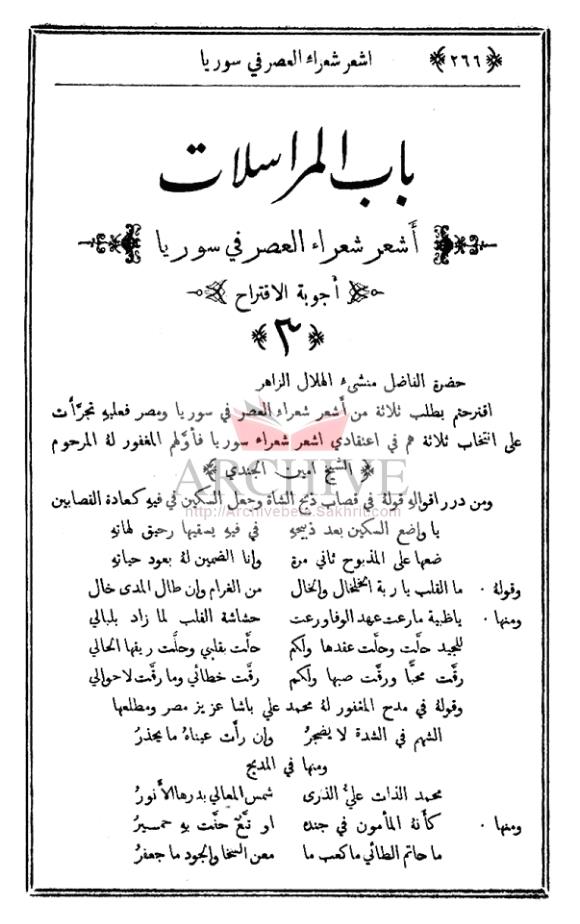 ﴿٢٦٦﴾ اشعر شعراء العصر في سوريا
باب المراسلات
أشعر شعراء العصر في سوريا
أجوبة الاقتراح
﴿٣﴾
حضرة الفاضل منشىء الهلال الزاهر
اقترحتم بطلب ثلاثة من أشعر شعراء العصر في سوريا ومصر فعليهِ تجرَّأت
على انتخاب ثلاثة هم في اعتقادي اشعر شعراء سوريا فأولهم المغفور لهُ المرحوم
﴿ الشيخ امين الجندي ﴾
ARCHIVE
http://Archivebeta.Sakhrit.com
ومن درر اقوالهِ قولهُ في قصاب ذبح الشاة وجعل السكين في فيهِ كعادة القصابين
يا واضع السكين بعد ذبيحهِ في فيهِ يسقيها رحيق لهاتهِ
ضعها على المذبوح ثاني مرة وانا الضمين لهُ بعود حياتهِ
وقولهُ · ما القلب يا ربة الخلخال والخال من الغرام وإن طال المدى خال
ومنها · ياظبية مارعت عهد الوفا ورعت حشاشة القلب لما زاد بلبالي
للجيد حلَّت وحلَّت عقدها ولكم حلَّت بقلبي وحلَّت ريقها الحالي
رقَّت محبًّا ورقَّت صبها ولكم رقَّت خطائي وما رقَّت لاحوالي
وقولهُ في مدح المغفور لهُ محمد علي باشا عزيز مصر ومطلعها
الشهم في الشدة لا يضجرُ وإن رأت عيناهُ ما يحذرُ
ومنها في المديح
محمد الذات عليُّ الذرى شمس المعالي بدرها الأنورُ
ومنها · كأنهُ المأمون في جنده او تبَّعٌ حفَّت بهِ حميرُ
ما حاتم الطائي ما كعب ما معن السخا والجود ما جعفرُ